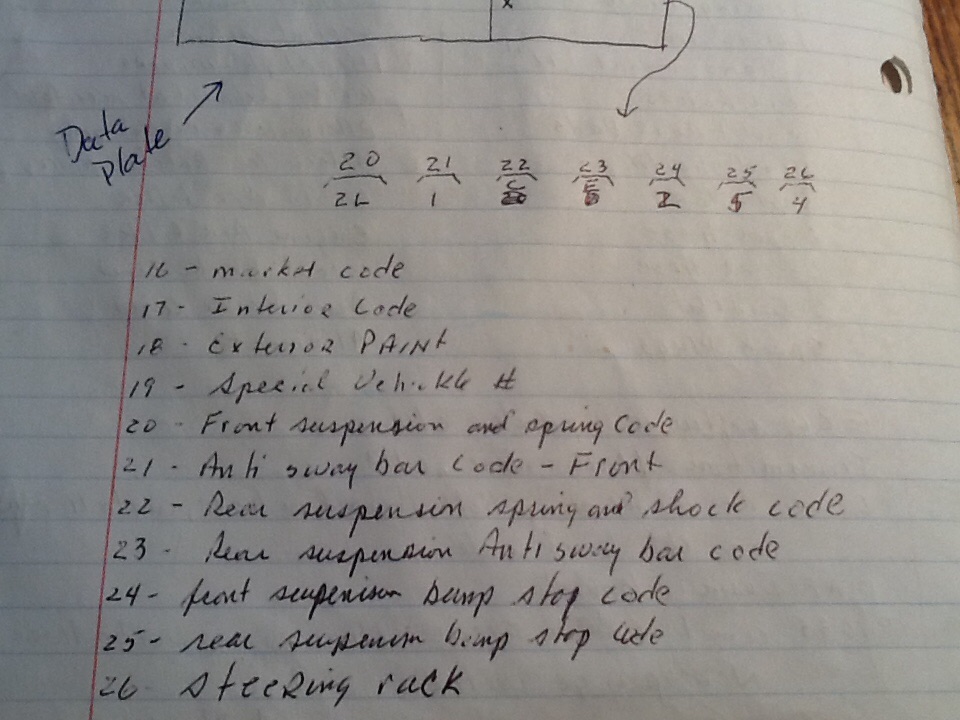 x
Data
Plate
20 21 22 23 24 25 26
2L 1 C E 2 5 4
16 - market code
17 - Interior Code
18 - Exterior PAINT
19 - Special Vehickle #
20 - Front suspension and spring Code
21 - Anti sway bar Code - Front
22 - Rear suspension spring and shock code
23 - Rear suspension Anti sway bar code
24 - front suspension bump stop code
25 - rear suspension bump stop code
26 steering rack